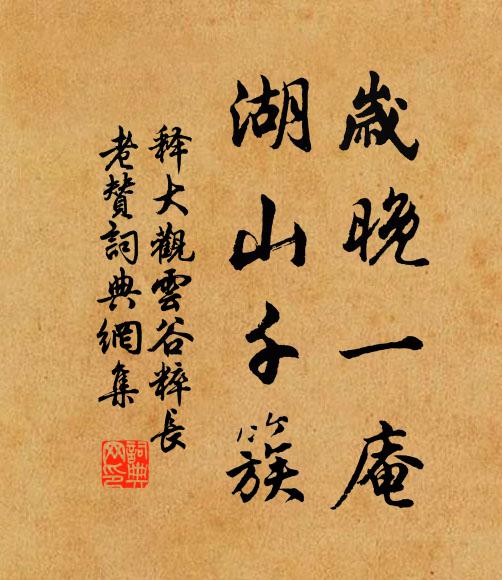 歲晚一庵
湖山千簇
释大觀雲谷粹長
老贊詞典網集
詞典
网印